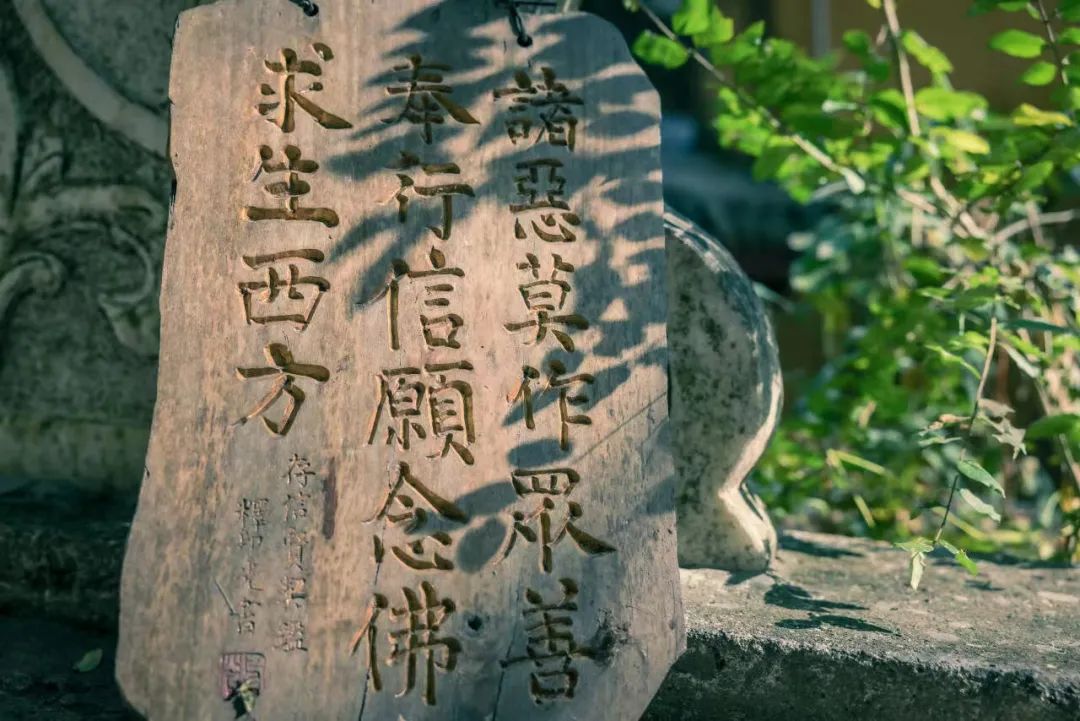 諸惡莫作眾善
奉行信願念佛
求生西方
存信賢契鑒
釋印光書